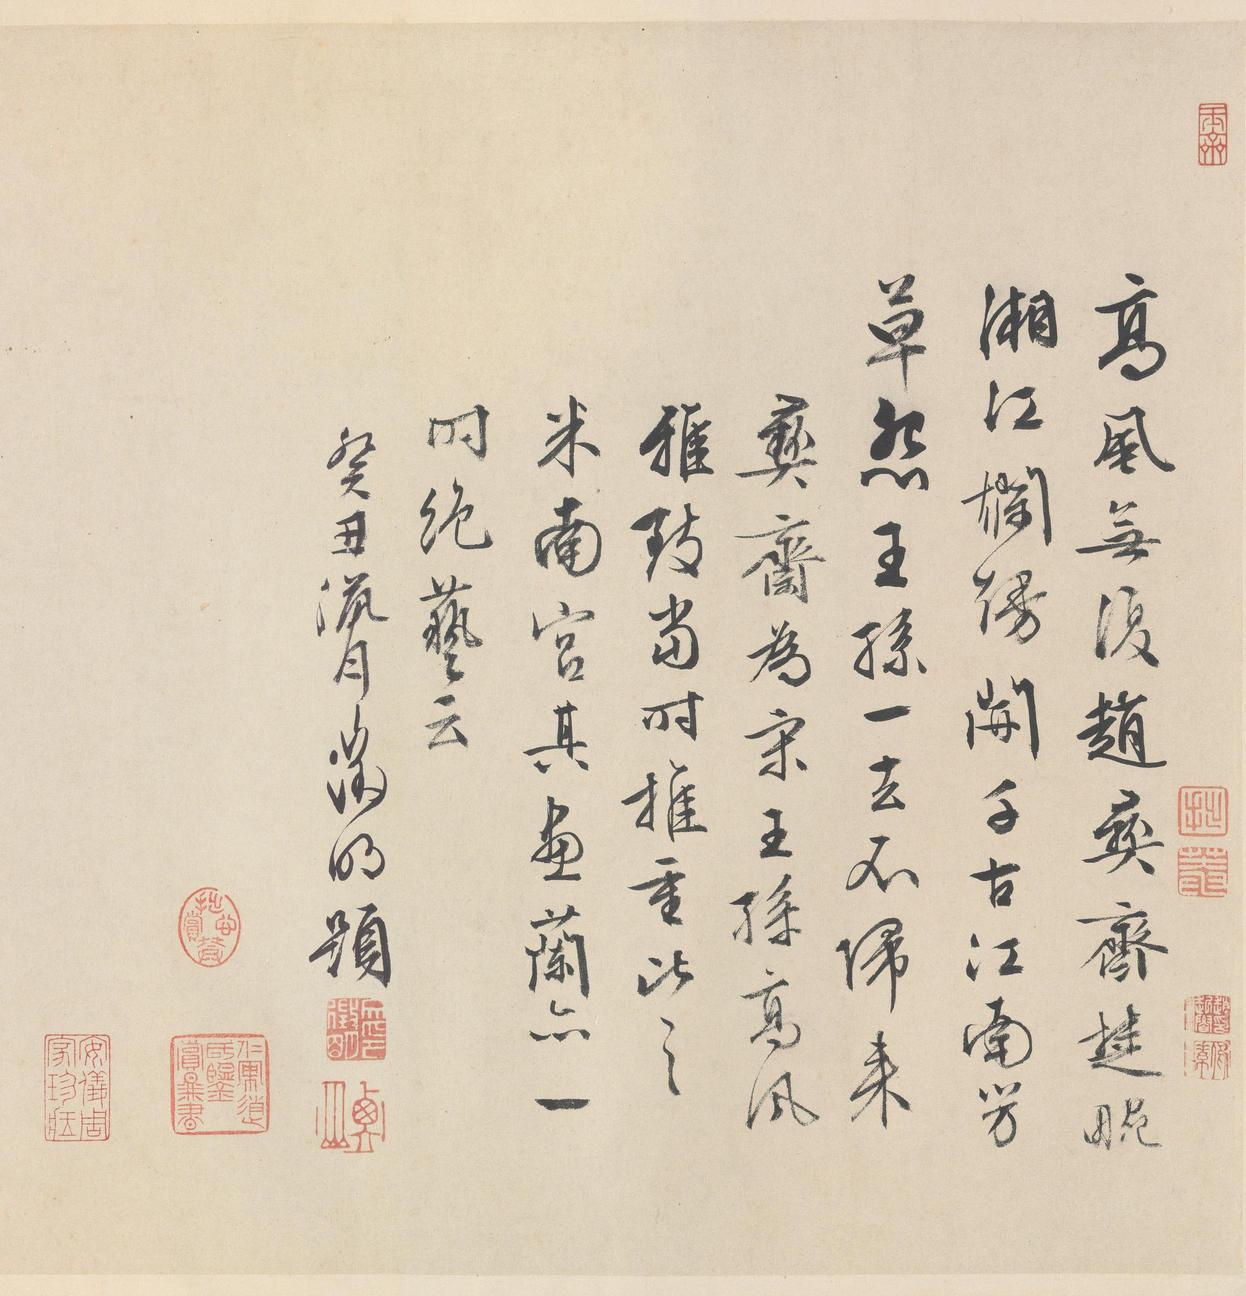 高風無復趙彝齋楚畹
湘江爛熳開千古江南芳
草怨王孫一去不歸来
彝齋為宋王孫高風
雅致當时推重比之
米南宮其畫蘭亦一
时絶藝云
癸丑臘月徵明題
衡山
安儀周家珍藏